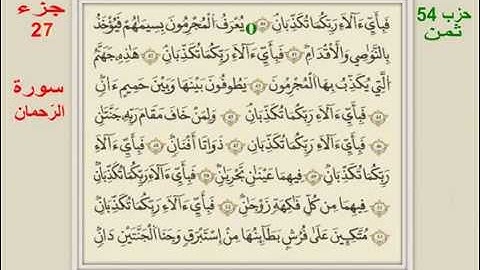 جزء
27
حزب 54
ثمن
سورة
الرحمان
فَبِأَيِّ ءَالَآءِ رَبِّكُمَا تُكَذِّبَانِ يُعْرَفُ الْمُجْرِمُونَ بِسِيمَاهُمْ فَيُؤْخَذُ
بِالنَّوَاصِي وَالْأَقْدَامِ فَبِأَيِّ ءَالَآءِ رَبِّكُمَا تُكَذِّبَانِ هَٰذِهِ جَهَنَّمُ
الَّتِي يُكَذِّبُ بِهَا الْمُجْرِمُونَ يَطُوفُونَ بَيْنَهَا وَبَيْنَ حَمِيمٍ ءَانٍ
فَبِأَيِّ ءَالَآءِ رَبِّكُمَا تُكَذِّبَانِ وَلِمَنْ خَافَ مَقَامَ رَبِّهِ جَنَّتَانِ
فَبِأَيِّ ءَالَآءِ رَبِّكُمَا تُكَذِّبَانِ ذَوَاتَا أَفْنَانٍ فَبِأَيِّ ءَالَآءِ
رَبِّكُمَا تُكَذِّبَانِ فِيهِمَا عَيْنَانِ تَجْرِيَانِ فَبِأَيِّ ءَالَآءِ رَبِّكُمَا تُكَذِّبَانِ
فِيهِمَا مِن كُلِّ فَاكِهَةٍ زَوْجَانِ فَبِأَيِّ ءَالَآءِ رَبِّكُمَا تُكَذِّبَانِ
مُتَّكِـِٔينَ عَلَىٰ فُرُشٍ بَطَآئِنُهَا مِنْ إِسْتَبْرَقٍ وَجَنَا الْجَنَّتَيْنِ دَانٍ